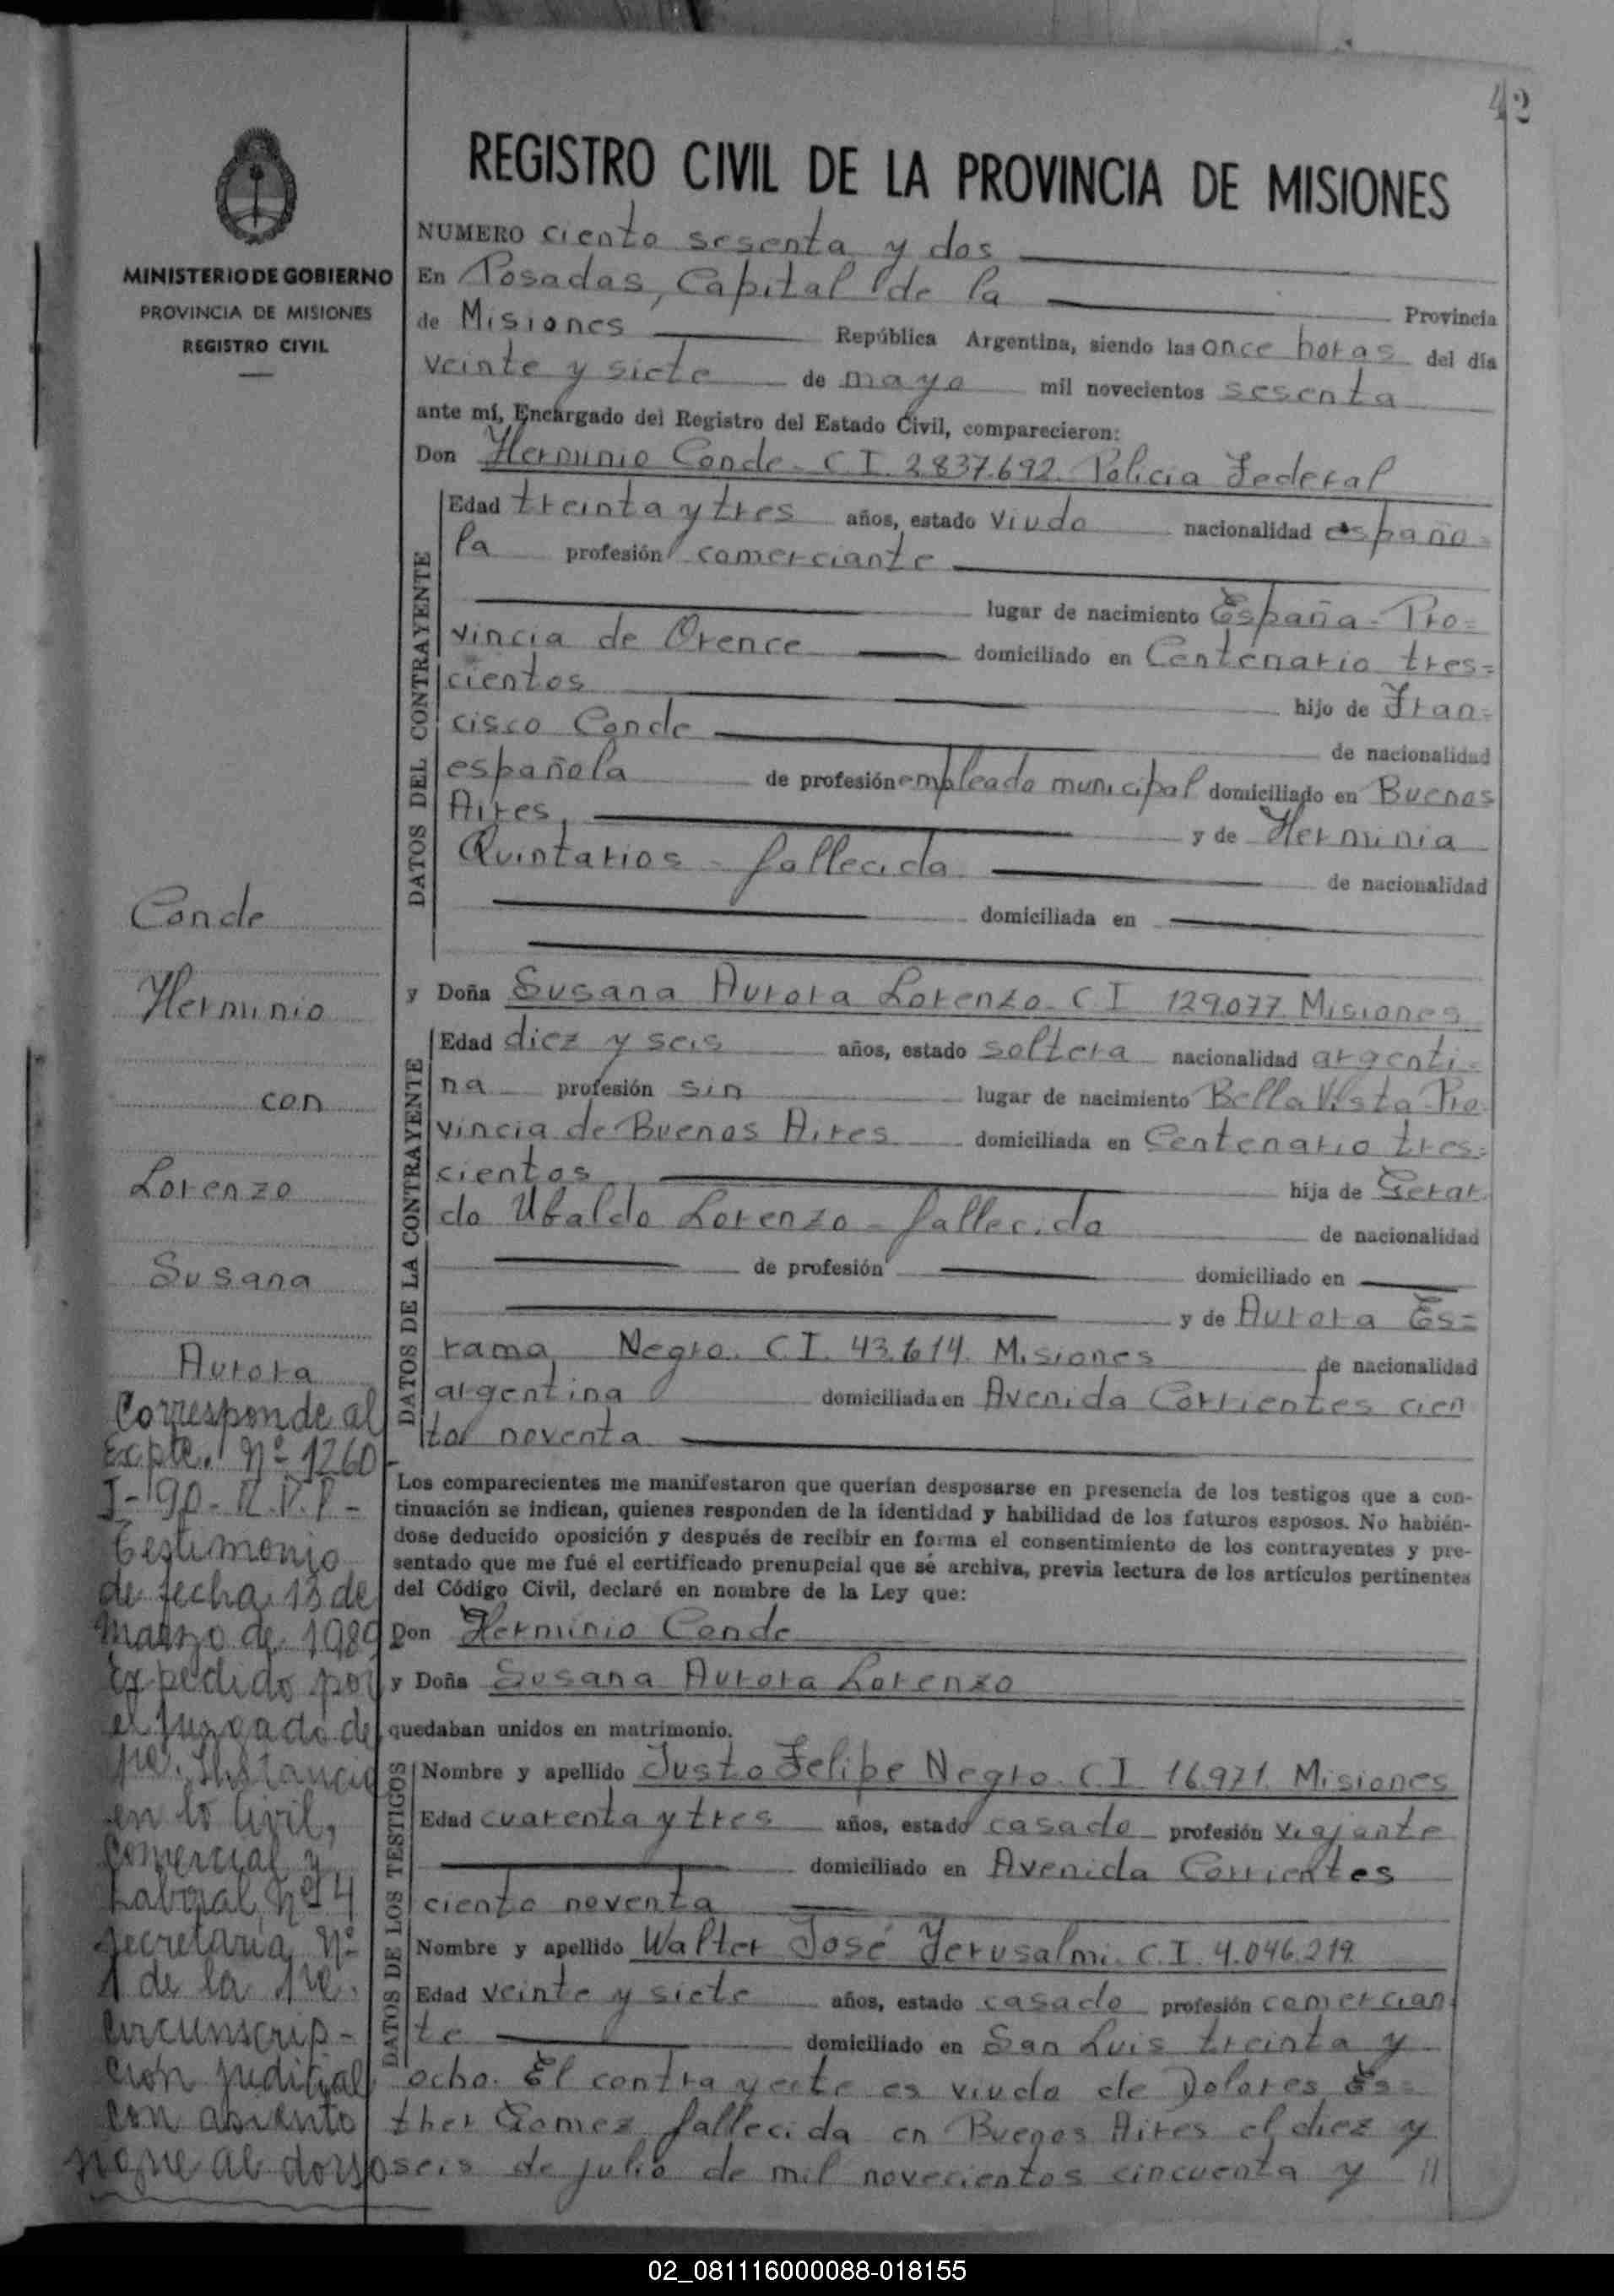 42
REGISTRO CIVIL DE LA PROVINCIA DE MISIONES
MINISTERIO DE GOBIERNO
PROVINCIA DE MISIONES
REGISTRO CIVIL
NUMERO ciento sesenta y dos
En Posadas, Capital de la Provincia
de Misiones República Argentina, siendo las once horas del día
veinte y siete de mayo mil novecientos sesenta
ante mí, Encargado del Registro del Estado Civil, comparecieron:
Don Herminio Conde - C I. 2.837.692. Policia Federal
DATOS DEL CONTRAYENTE
Edad treinta y tres años, estado viudo nacionalidad españo=
la profesión comerciante
lugar de nacimiento España - Pro=
vincia de Orence domiciliado en Centenario tres=
cientos hijo de Fran=
cisco Conde de nacionalidad
española de profesión empleado municipal domiciliado en Buenos
Aires, y de Herminia
Quintarios - fallecida de nacionalidad
domiciliada en
y Doña Susana Aurora Lorenzo - C I 129.077. Misiones
DATOS DE LA CONTRAYENTE
Edad diez y seis años, estado soltera nacionalidad argenti=
na profesión sin lugar de nacimiento Bella Vista - Pro-
vincia de Buenos Aires domiciliada en Centenario tres=
cientos hija de Gerar
do Ubaldo Lorenzo - fallecido de nacionalidad
de profesión domiciliado en
y de Aurora Es=
rama Negro. C I. 43.614. Misiones de nacionalidad
argentina domiciliada en Avenida Corrientes cien
to noventa
Los comparecientes me manifestaron que querían desposarse en presencia de los testigos que a con-
tinuación se indican, quienes responden de la identidad y habilidad de los futuros esposos. No habién-
dose deducido oposición y después de recibir en forma el consentimiento de los contrayentes y pre-
sentado que me fué el certificado prenupcial que se archiva, previa lectura de los artículos pertinentes
del Código Civil, declaré en nombre de la Ley que:
Don Herminio Conde
y Doña Susana Aurora Lorenzo
quedaban unidos en matrimonio.
DATOS DE LOS TESTIGOS
Nombre y apellido Justo Felipe Negro. C.I. 16.971. Misiones
Edad cuarenta y tres años, estado casado profesión viajante
domiciliado en Avenida Corrientes
ciento noventa
Nombre y apellido Walter José Jerusalmi. C.I. 4.046.219.
Edad veinte y siete años, estado casado profesión comercian
te domiciliado en San Luis treinta y
ocho. El contrayente es viudo de Dolores Es=
ther Gomez fallecida en Buenos Aires el diez y
seis de julio de mil novecientos cincuenta y //
Conde
Herminio
con
Lorenzo
Susana
Aurora
Corresponde al
Expte. Nº 1260-
J-90-R.P.P-
Testimonio
de fecha 13 de
Marzo de 1989
Expedido por
el Juzgado de
1ra. Instancia
en lo Civil,
Comercial y
Laboral, Nº 4
Secretaria Nº
1 de la 1ra.
Circunscrip-
ción Judicial
con asiento
al dorso
02_081116000088-018155